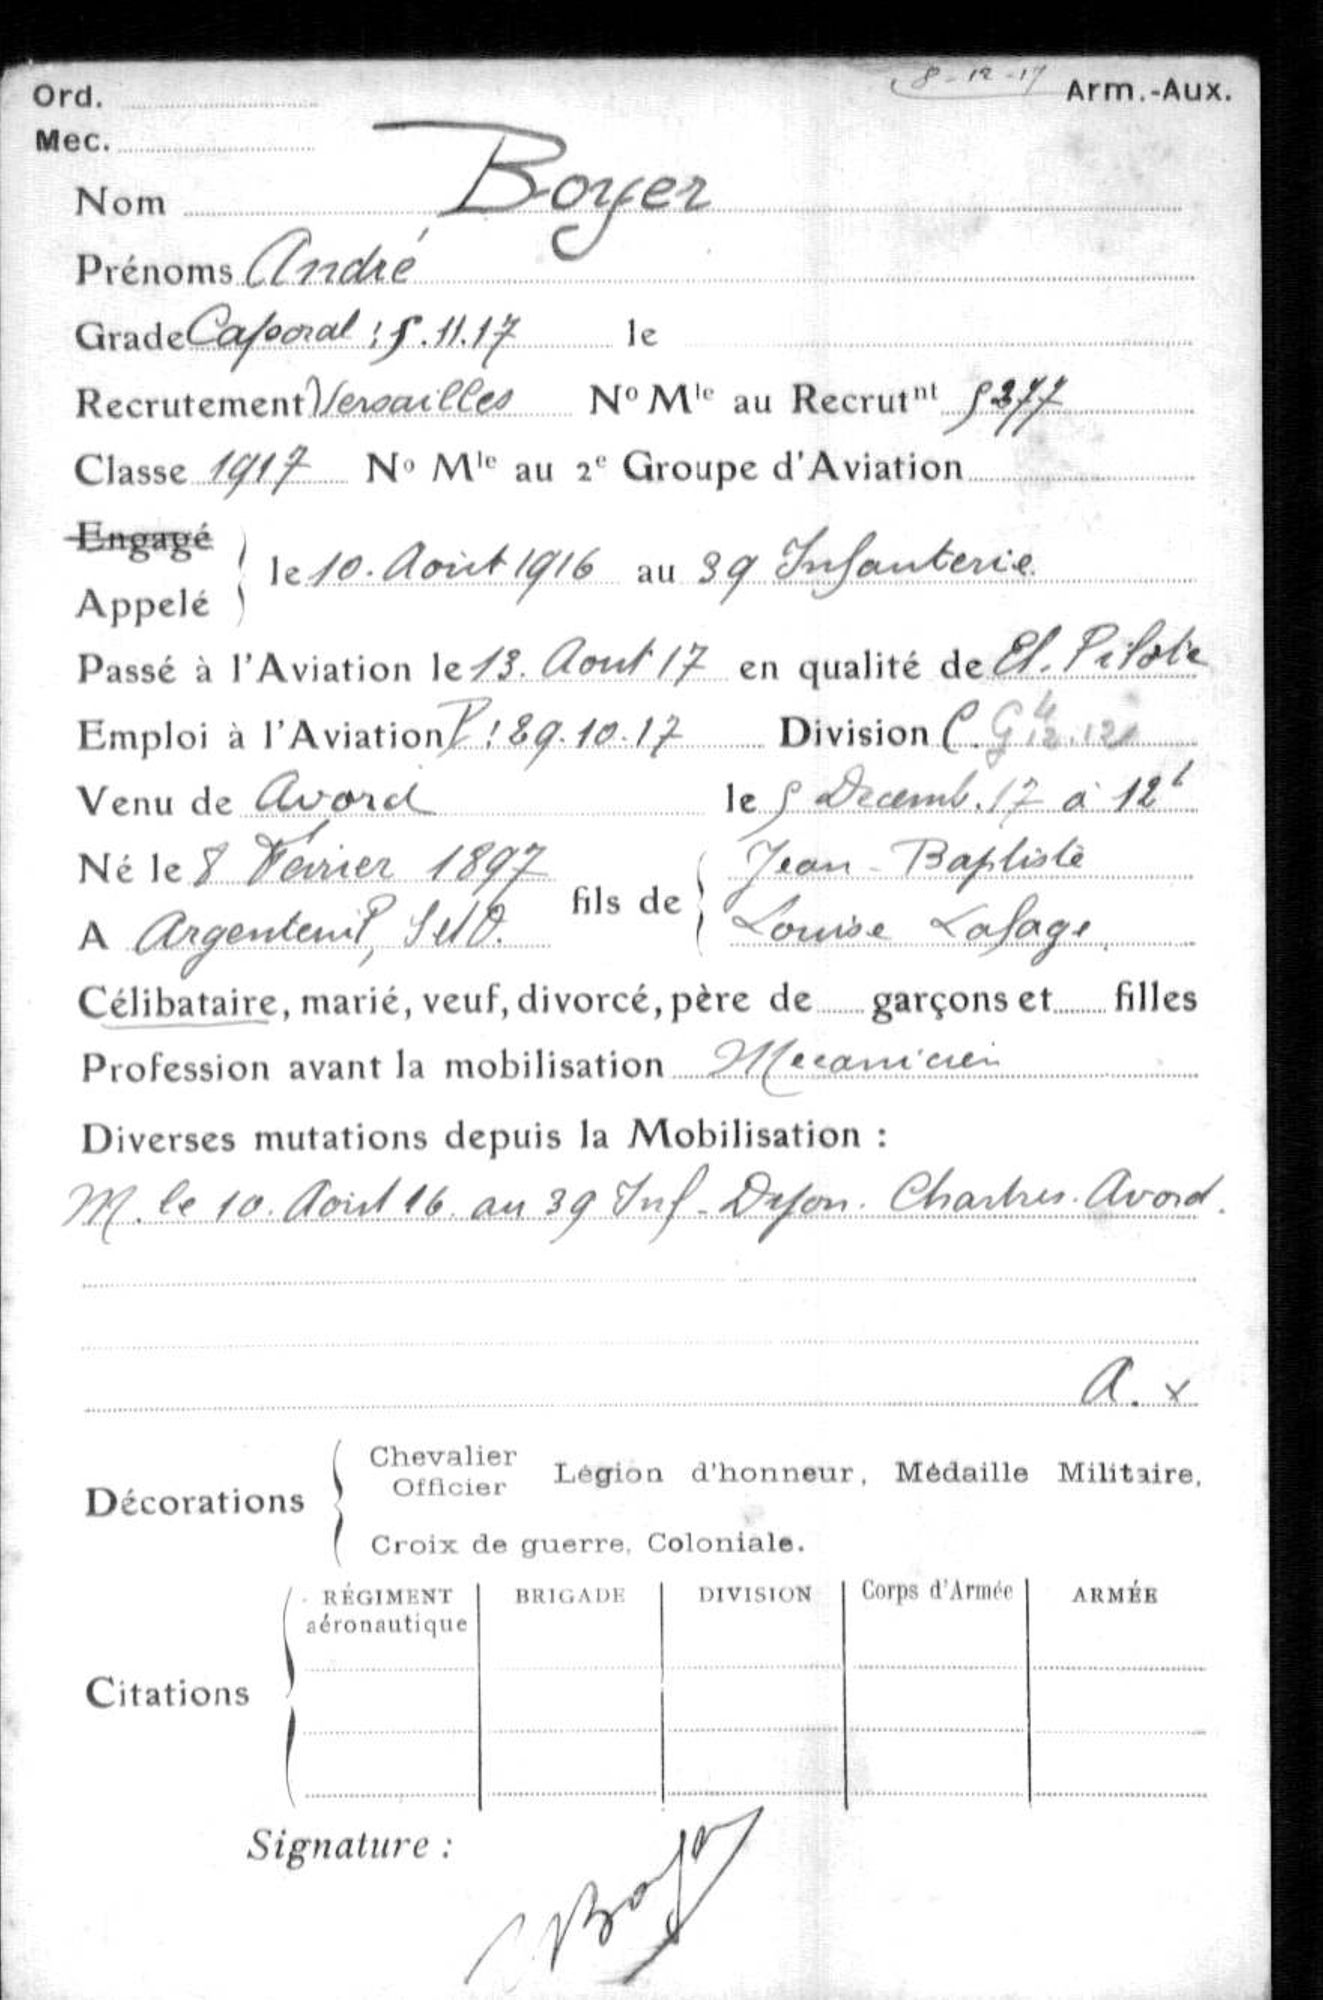 8-12-17 Arm.-Aux.
Ord.
Mec.
Nom Boyer
Prénoms André
Grade Caporal : 5.11.17 le
Recrutement Versailles No Mle au Recrutnt 5377
Classe 1917 No Mle au 2e Groupe d'Aviation
Engagé
Appelé
le 10. Août 1916 au 39 Infanterie
Passé à l'Aviation le 13. Aout 17 en qualité de El. Pilote
Emploi à l'Aviation P : 29.10.17 Division
Venu de Avord le 5 Decemb. 17 à 12h
Né le 8 Février 1897
A Argenteuil, S et O.
fils de
Jean-Baptiste
Louise Lafage
Célibataire, marié, veuf, divorcé, père de garçons et filles
Profession avant la mobilisation Mecanicien
Diverses mutations depuis la Mobilisation :
M. le 10. Août 16 au 39 Inf - Dijon. Chartres. Avord.
A. x
Décorations
Chevalier
Officier
Légion d'honneur, Médaille Militaire,
Croix de guerre, Coloniale.
Citations
RÉGIMENT aéronautique BRIGADE DIVISION Corps d'Armée ARMÉE
Signature :
Boyer